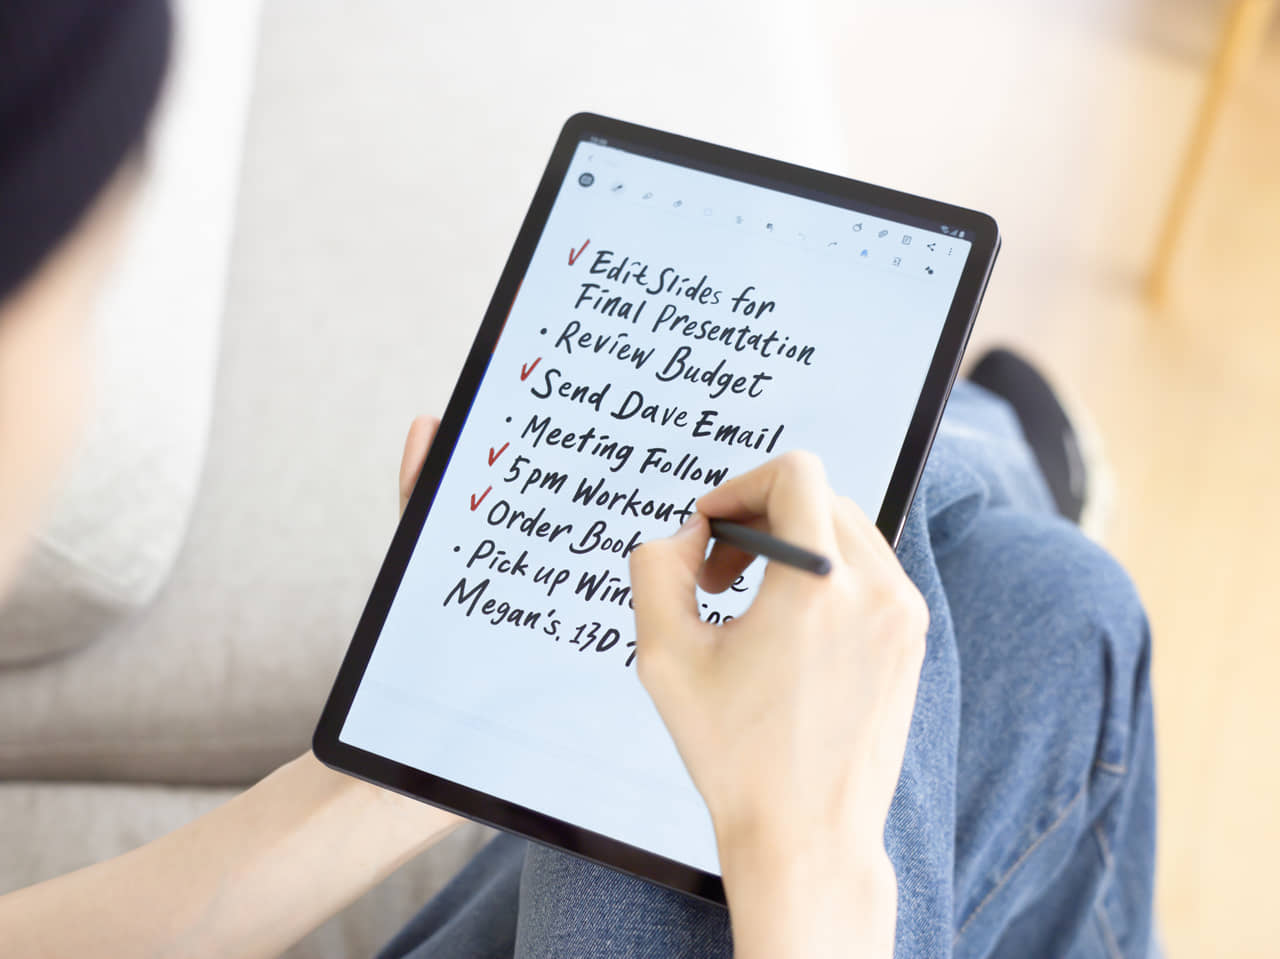 ✓ Edit Slides for
Final Presentation
• Review Budget
✓ Send Dave Email
• Meeting Follow
✓ 5pm Workout
✓ Order Book
• Pick up
Megan's, 13D